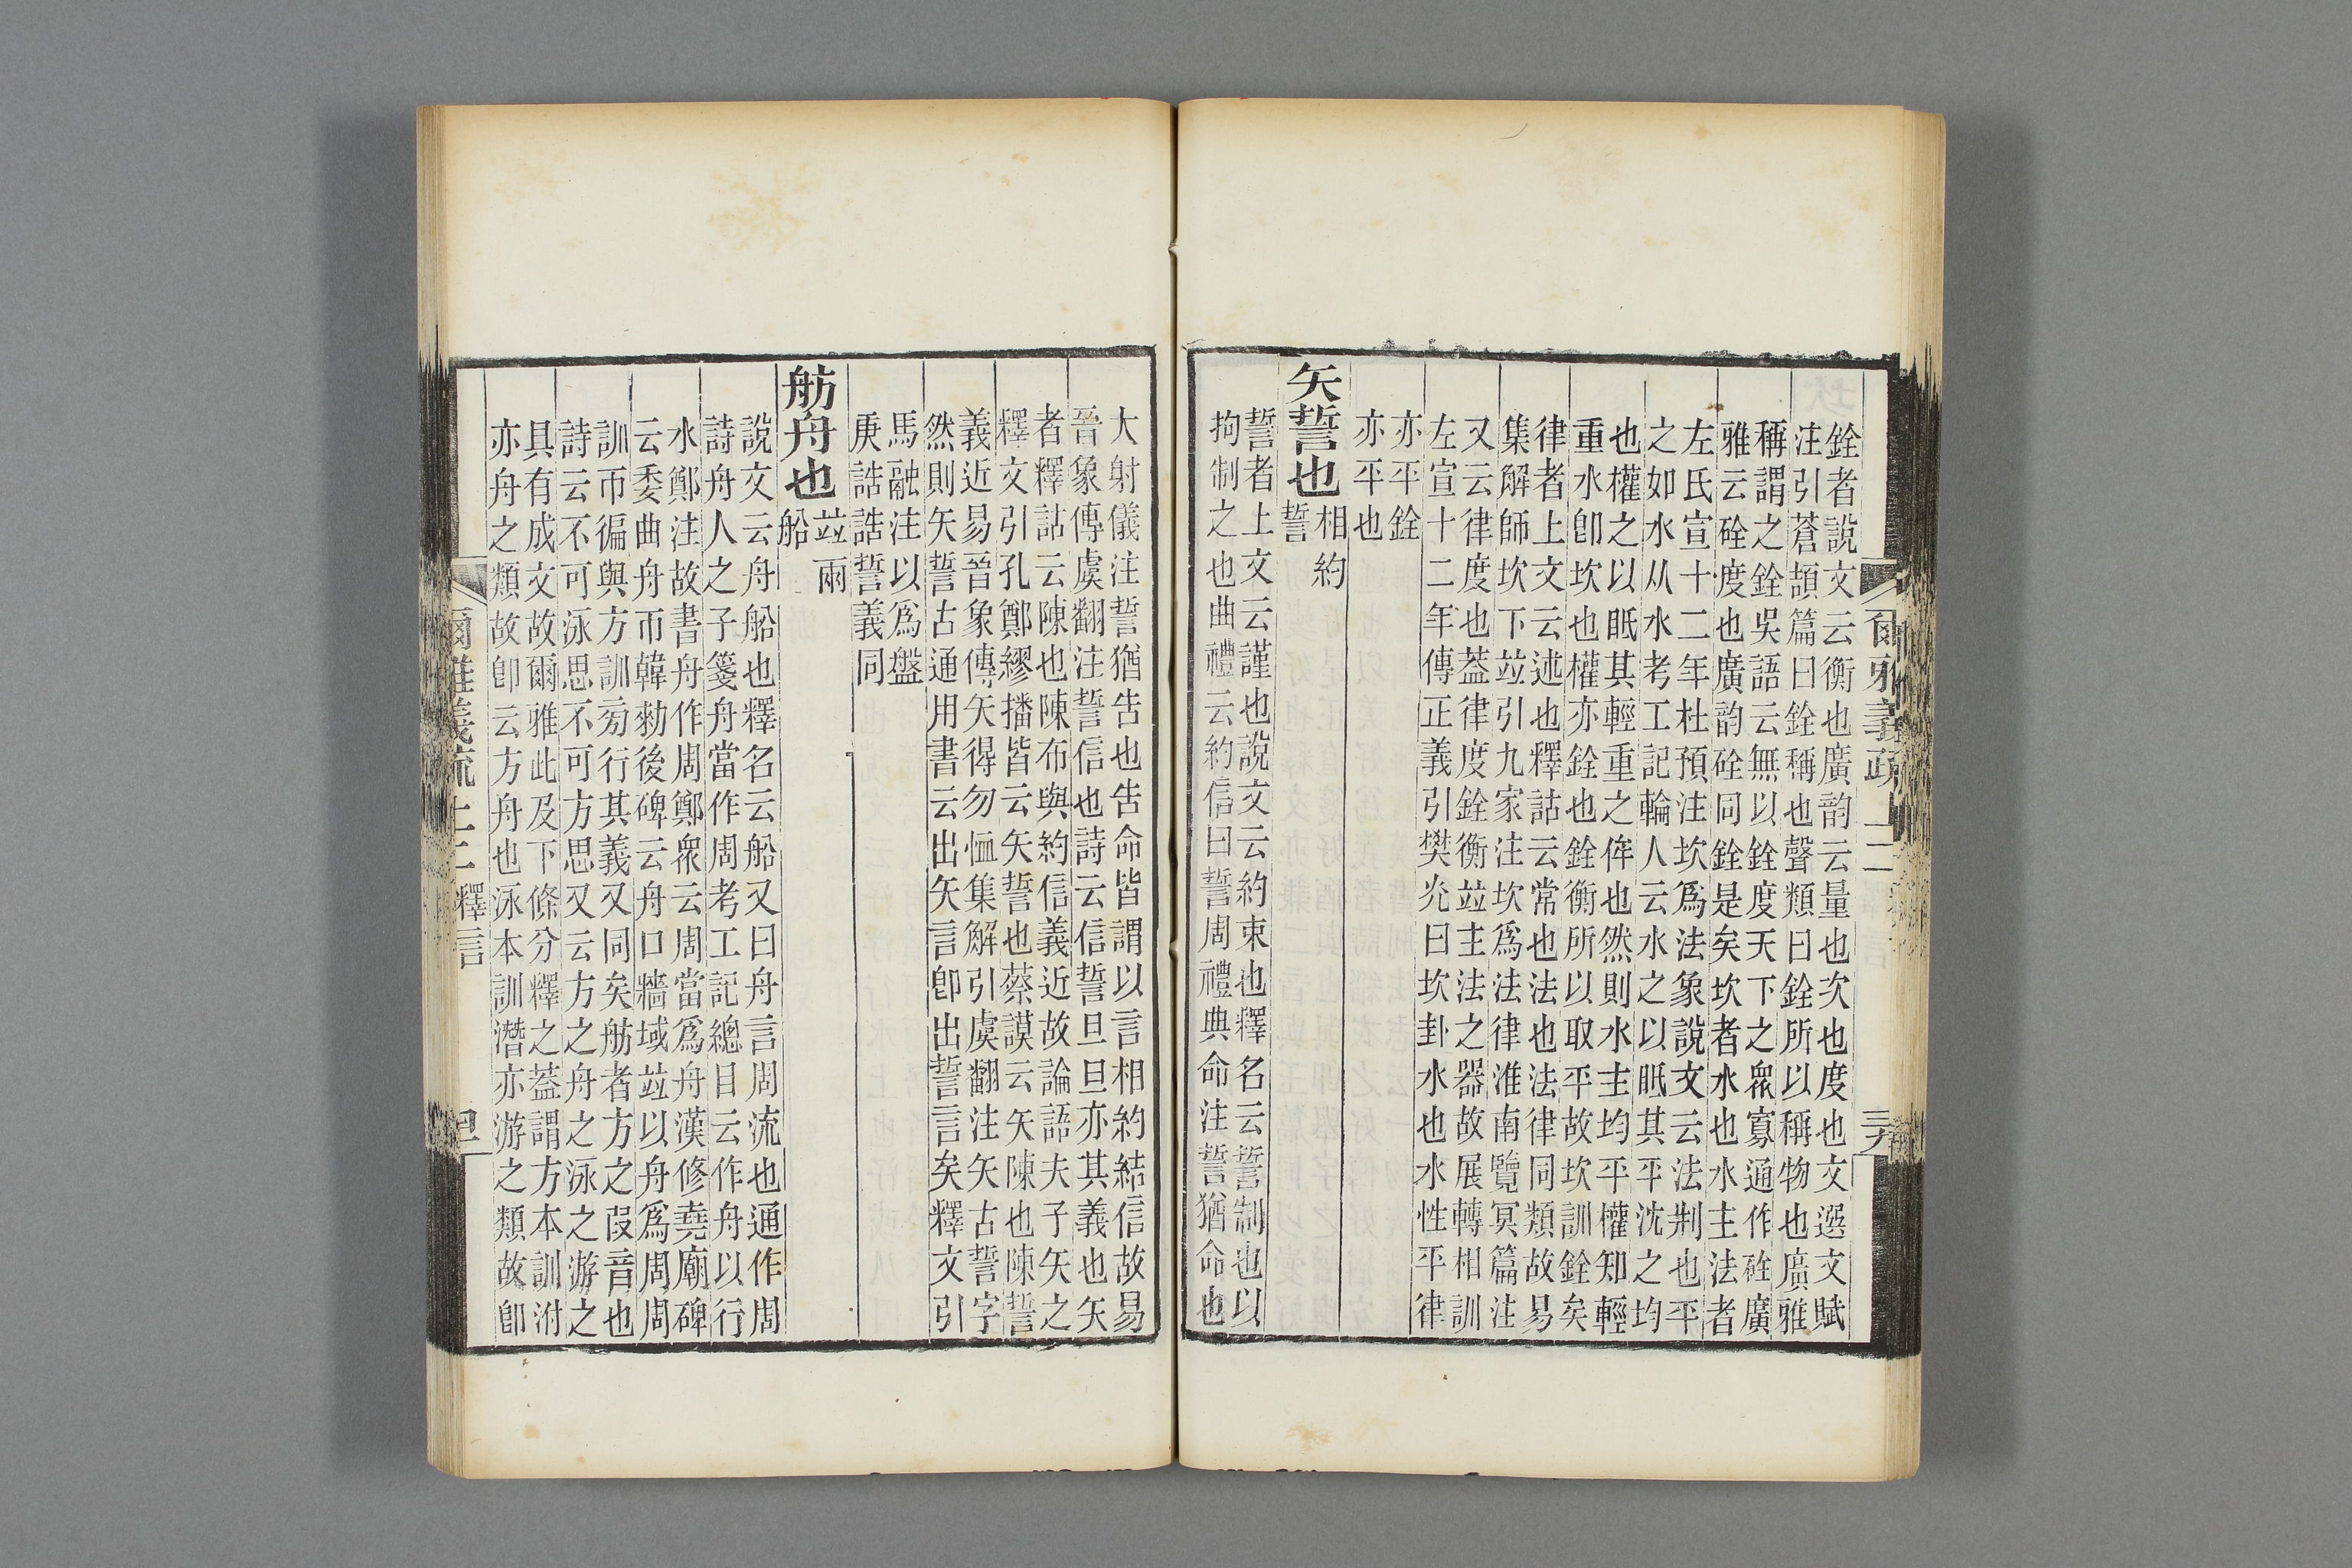 爾雅義疏 上二
銓者說文云衡也廣韵云量也次也度也文選文賦
注引蒼頡篇曰銓稱也聲類曰銓所以稱物也廣雅
稱謂之銓吳語云無以銓度天下之衆寡通作硂廣
雅云硂度也廣韵硂同銓是矣坎者水也水主法者
左氏宣十二年杜預注坎爲法象說文云法㓝也平
之如水从水考工記輪人云水之以眂其平沈之均
也權之以眂其輕重之侔也然則水主均平權知輕
重水卽坎也權亦銓也銓衡所以取平故坎訓銓矣
律者上文云述也釋詁云常也法也法律同類故易
集解師坎下竝引九家注坎爲法律淮南覽冥篇注
又云律度也葢律度銓衡竝主法之器故展轉相訓
左宣十二年傳正義引樊光曰坎卦水也水性平律
亦平銓
亦平也
矢誓也
相約
誓
誓者上文云謹也說文云約束也釋名云誓制也以
拘制之也曲禮云約信曰誓周禮典命注誓猶命也
大射儀注誓猶告也告命皆謂以言相約結信故易
晉象傳虞翻注誓信也詩云信誓旦旦亦其義也矢
者釋詁云陳也陳布與約信義近故論語夫子矢之
釋文引孔鄭繆播皆云矢誓也蔡謨云矢陳也陳誓
義近易晉象傳矢得勿恤集解引虞翻注矢古誓字
然則矢誓古通用書云出矢言卽出誓言矣釋文引
馬融注以爲盤
庚誥誥誓義同
舫舟也
竝兩
船
說文云舟船也釋名云船又曰舟言周流也通作周
詩舟人之子箋舟當作周考工記總目云作舟以行
水鄭注故書舟作周鄭衆云周當爲舟漢修堯廟碑
云委曲舟帀韓勑後碑云舟口牆域竝以舟爲周周
訓帀徧與方訓㫄行其義又同矣舫者方之叚音也
詩云不可泳思不可方思又云方之舟之泳之游之
具有成文故爾雅此及下條分釋之葢謂方本訓泭
亦舟之類故卽云方舟也泳本訓潛亦游之類故卽
爾雅義疏 上二 釋言